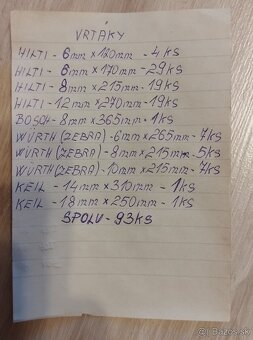 VRTÁKY
HILTI - 6mm × 120mm - 4KS
HILTI - 6mm × 170mm - 29KS
HILTI - 8mm × 215mm - 19KS
HILTI - 12mm × 270mm - 19KS
BOSCH - 8mm × 365mm - 1KS
WÜRTH (ZEBRA) - 6mm × 265mm - 7KS
WÜRTH (ZEBRA) - 8mm × 215mm - 5KS
WÜRTH (ZEBRA) - 10mm × 215mm - 7KS
KEIL - 14mm × 310mm - 1KS
KEIL - 18mm × 250mm - 1KS
SPOLU - 93KS